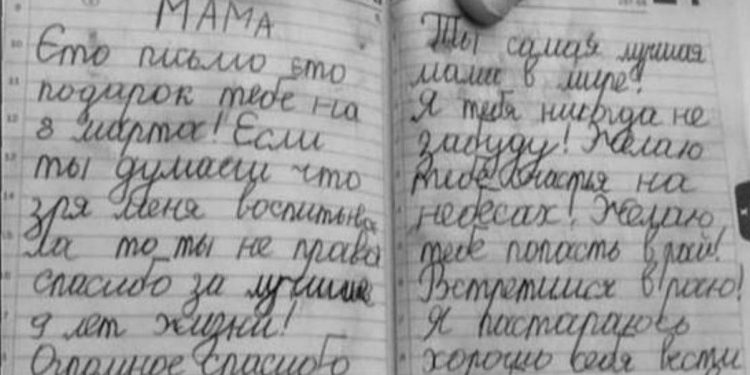 МАМА
Ето письмо ето
подарок тебе на
8 марта! Если
ты думаеш что
зря меня воспитыва
ла то ты не права
спасибо за лучшие
9 лет жизни!
Огромное спасибо
Ты самая лучшая
мама в мире!
Я тебя никогда не
забуду! Желаю
тебе счастья на
небесах! Желаю
тебе попасть в рай!
Встретимся в раю!
Я пастараюсь
хорошо себя вести